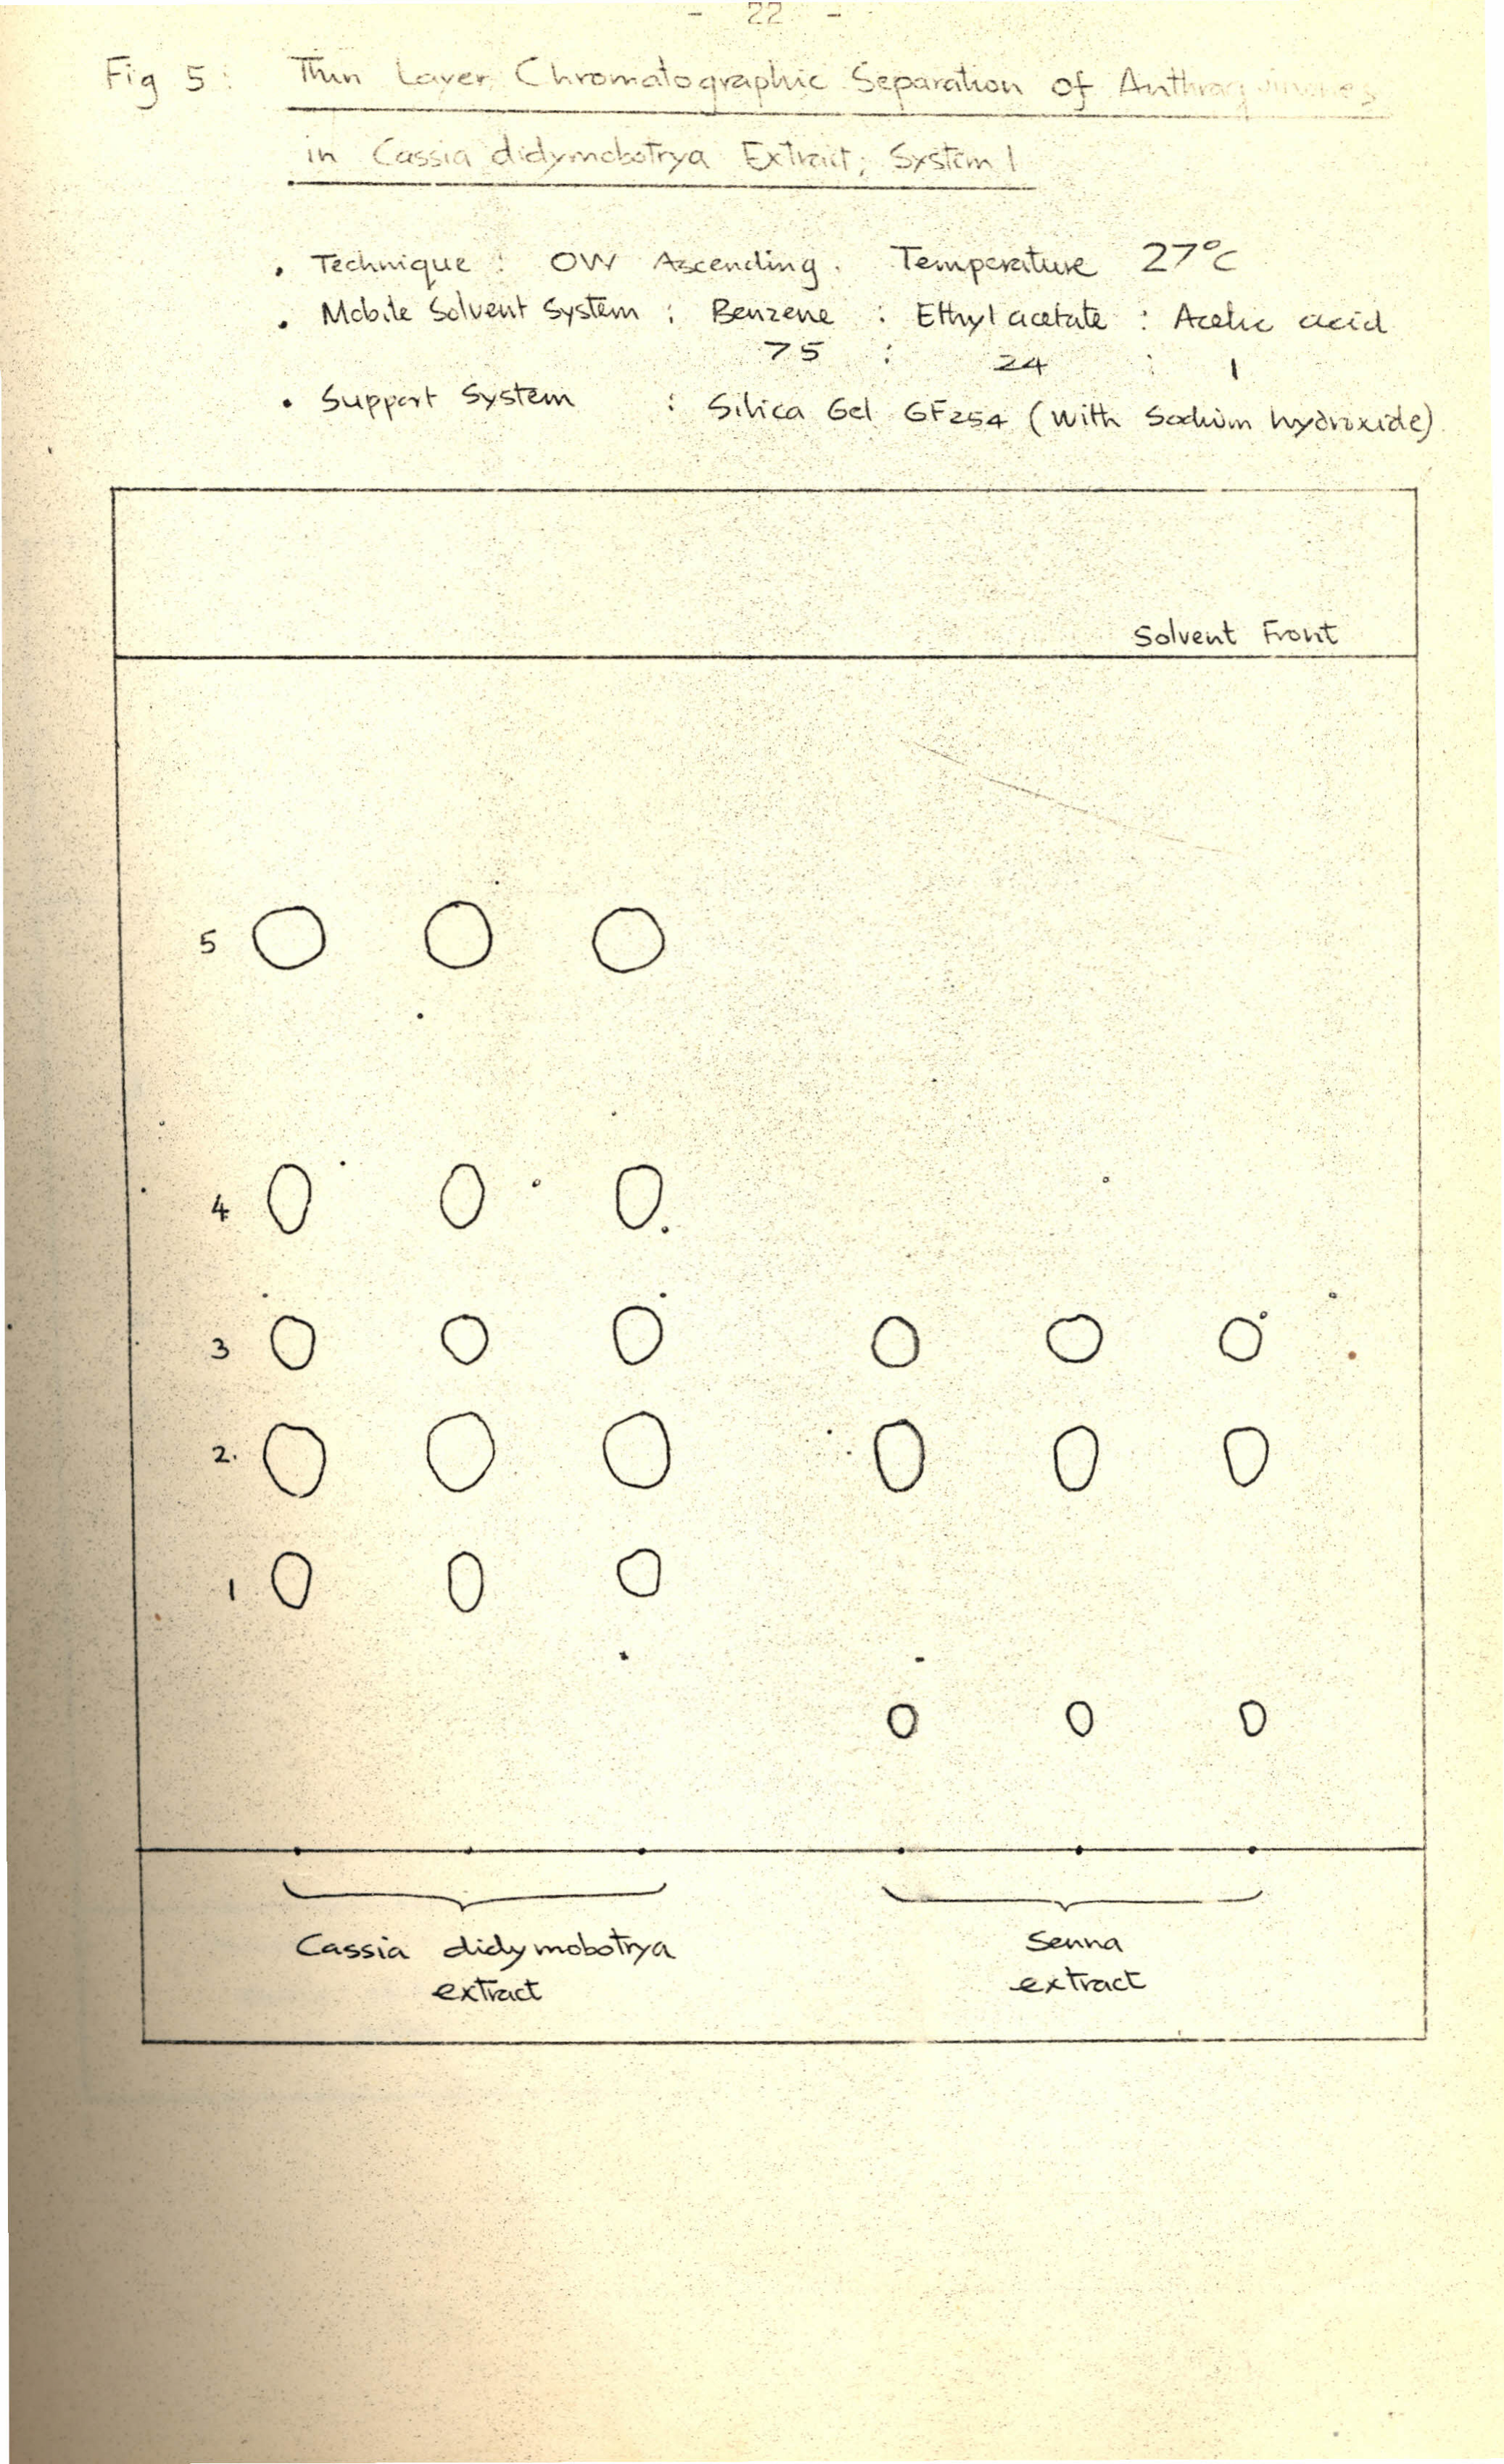 - 22 -
Fig 5: Thin Layer Chromatographic Separation of Anthraquinones
in Cassia didymobotrya Extract; System 1
• Technique : OW Ascending. Temperature 27°C
• Mobile Solvent System : Benzene : Ethyl acetate : Acetic acid
75 : 24 : 1
• Support System : Silica Gel GF254 (with Sodium hydroxide)
Solvent Front
5
4
3
2.
1
Cassia didymobotrya
extract
Senna
extract